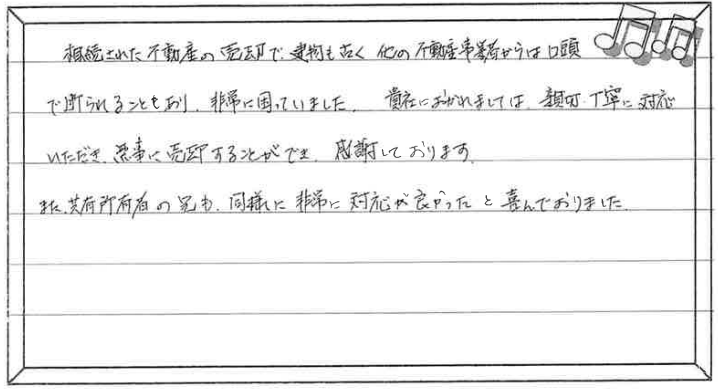 相続された不動産の売却で、建物も古く他の不動産事業者からは口頭
で断られることもあり、非常に困っていました。貴社におかれましては、親切・丁寧に対応
いただき、無事に売却することができ、感謝しております。
また、共有所有者の兄も、同様に非常に対応が良かったと喜んでおりました。